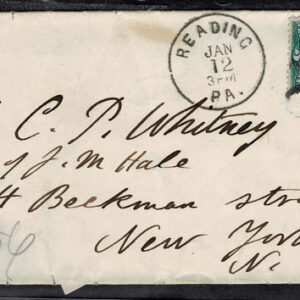 READING
JAN
12
3PM
PA.
C. P. Whitney
J. M Hale
4 Beekman stre
New York
N.